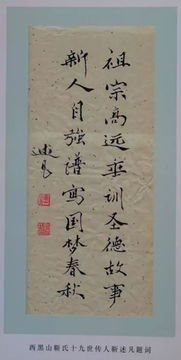 祖宗高远垂训圣德故事
新人自强谱写国梦春秋
述凡
西黑山靳氏十九世传人靳述凡题词